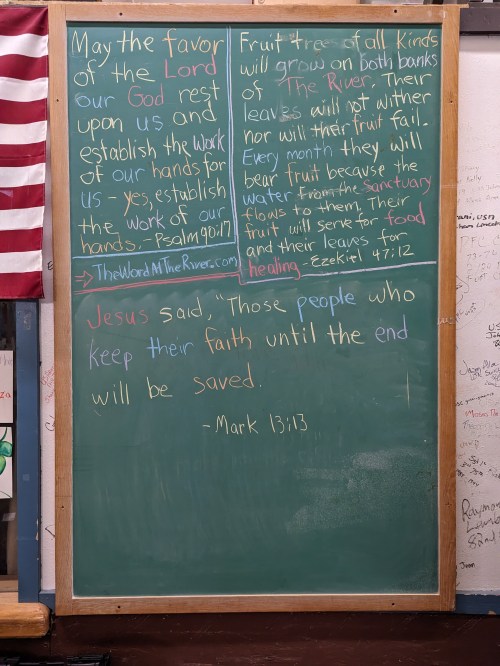 May the favor
of the Lord
our God rest
upon us and
establish the work
of our hands for
us - yes, establish
the work of our
hands. -Psalm 90:17
⇒ TheWordMTheRiver.com
Fruit trees of all kinds
will grow on both banks
of The River. Their
leaves will not wither
nor will their fruit fail.
Every month they will
bear fruit because the
water from the Sanctuary
flows to them. Their
fruit will serve for food
and their leaves for
healing - Ezekiel 47:12
Jesus said, "Those people who
keep their faith until the end
will be saved.
-Mark 13:13
Raymon
82nd